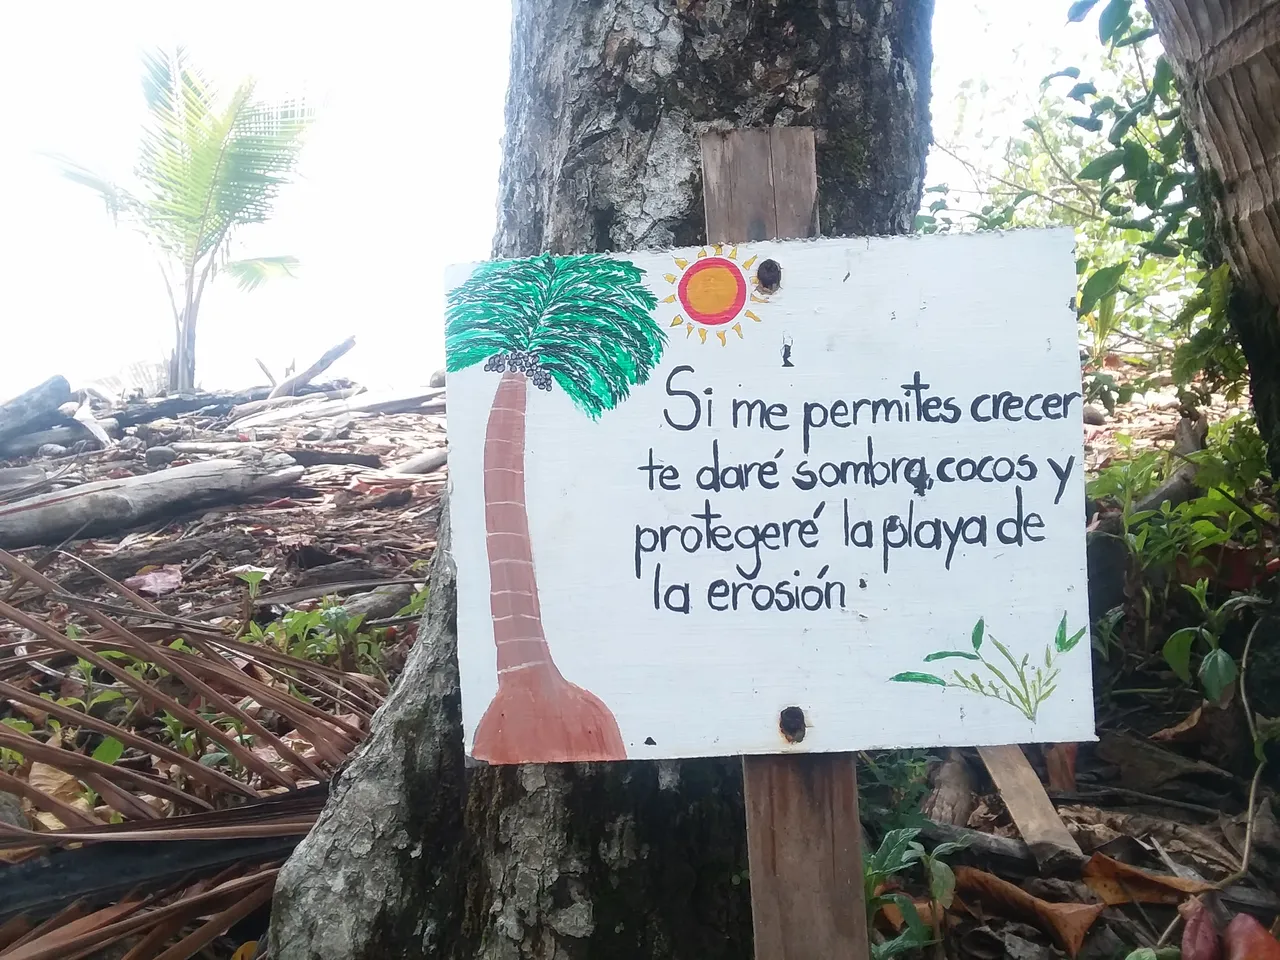 Si me permites crecer
te daré sombra, cocos y
protegeré la playa de
la erosión